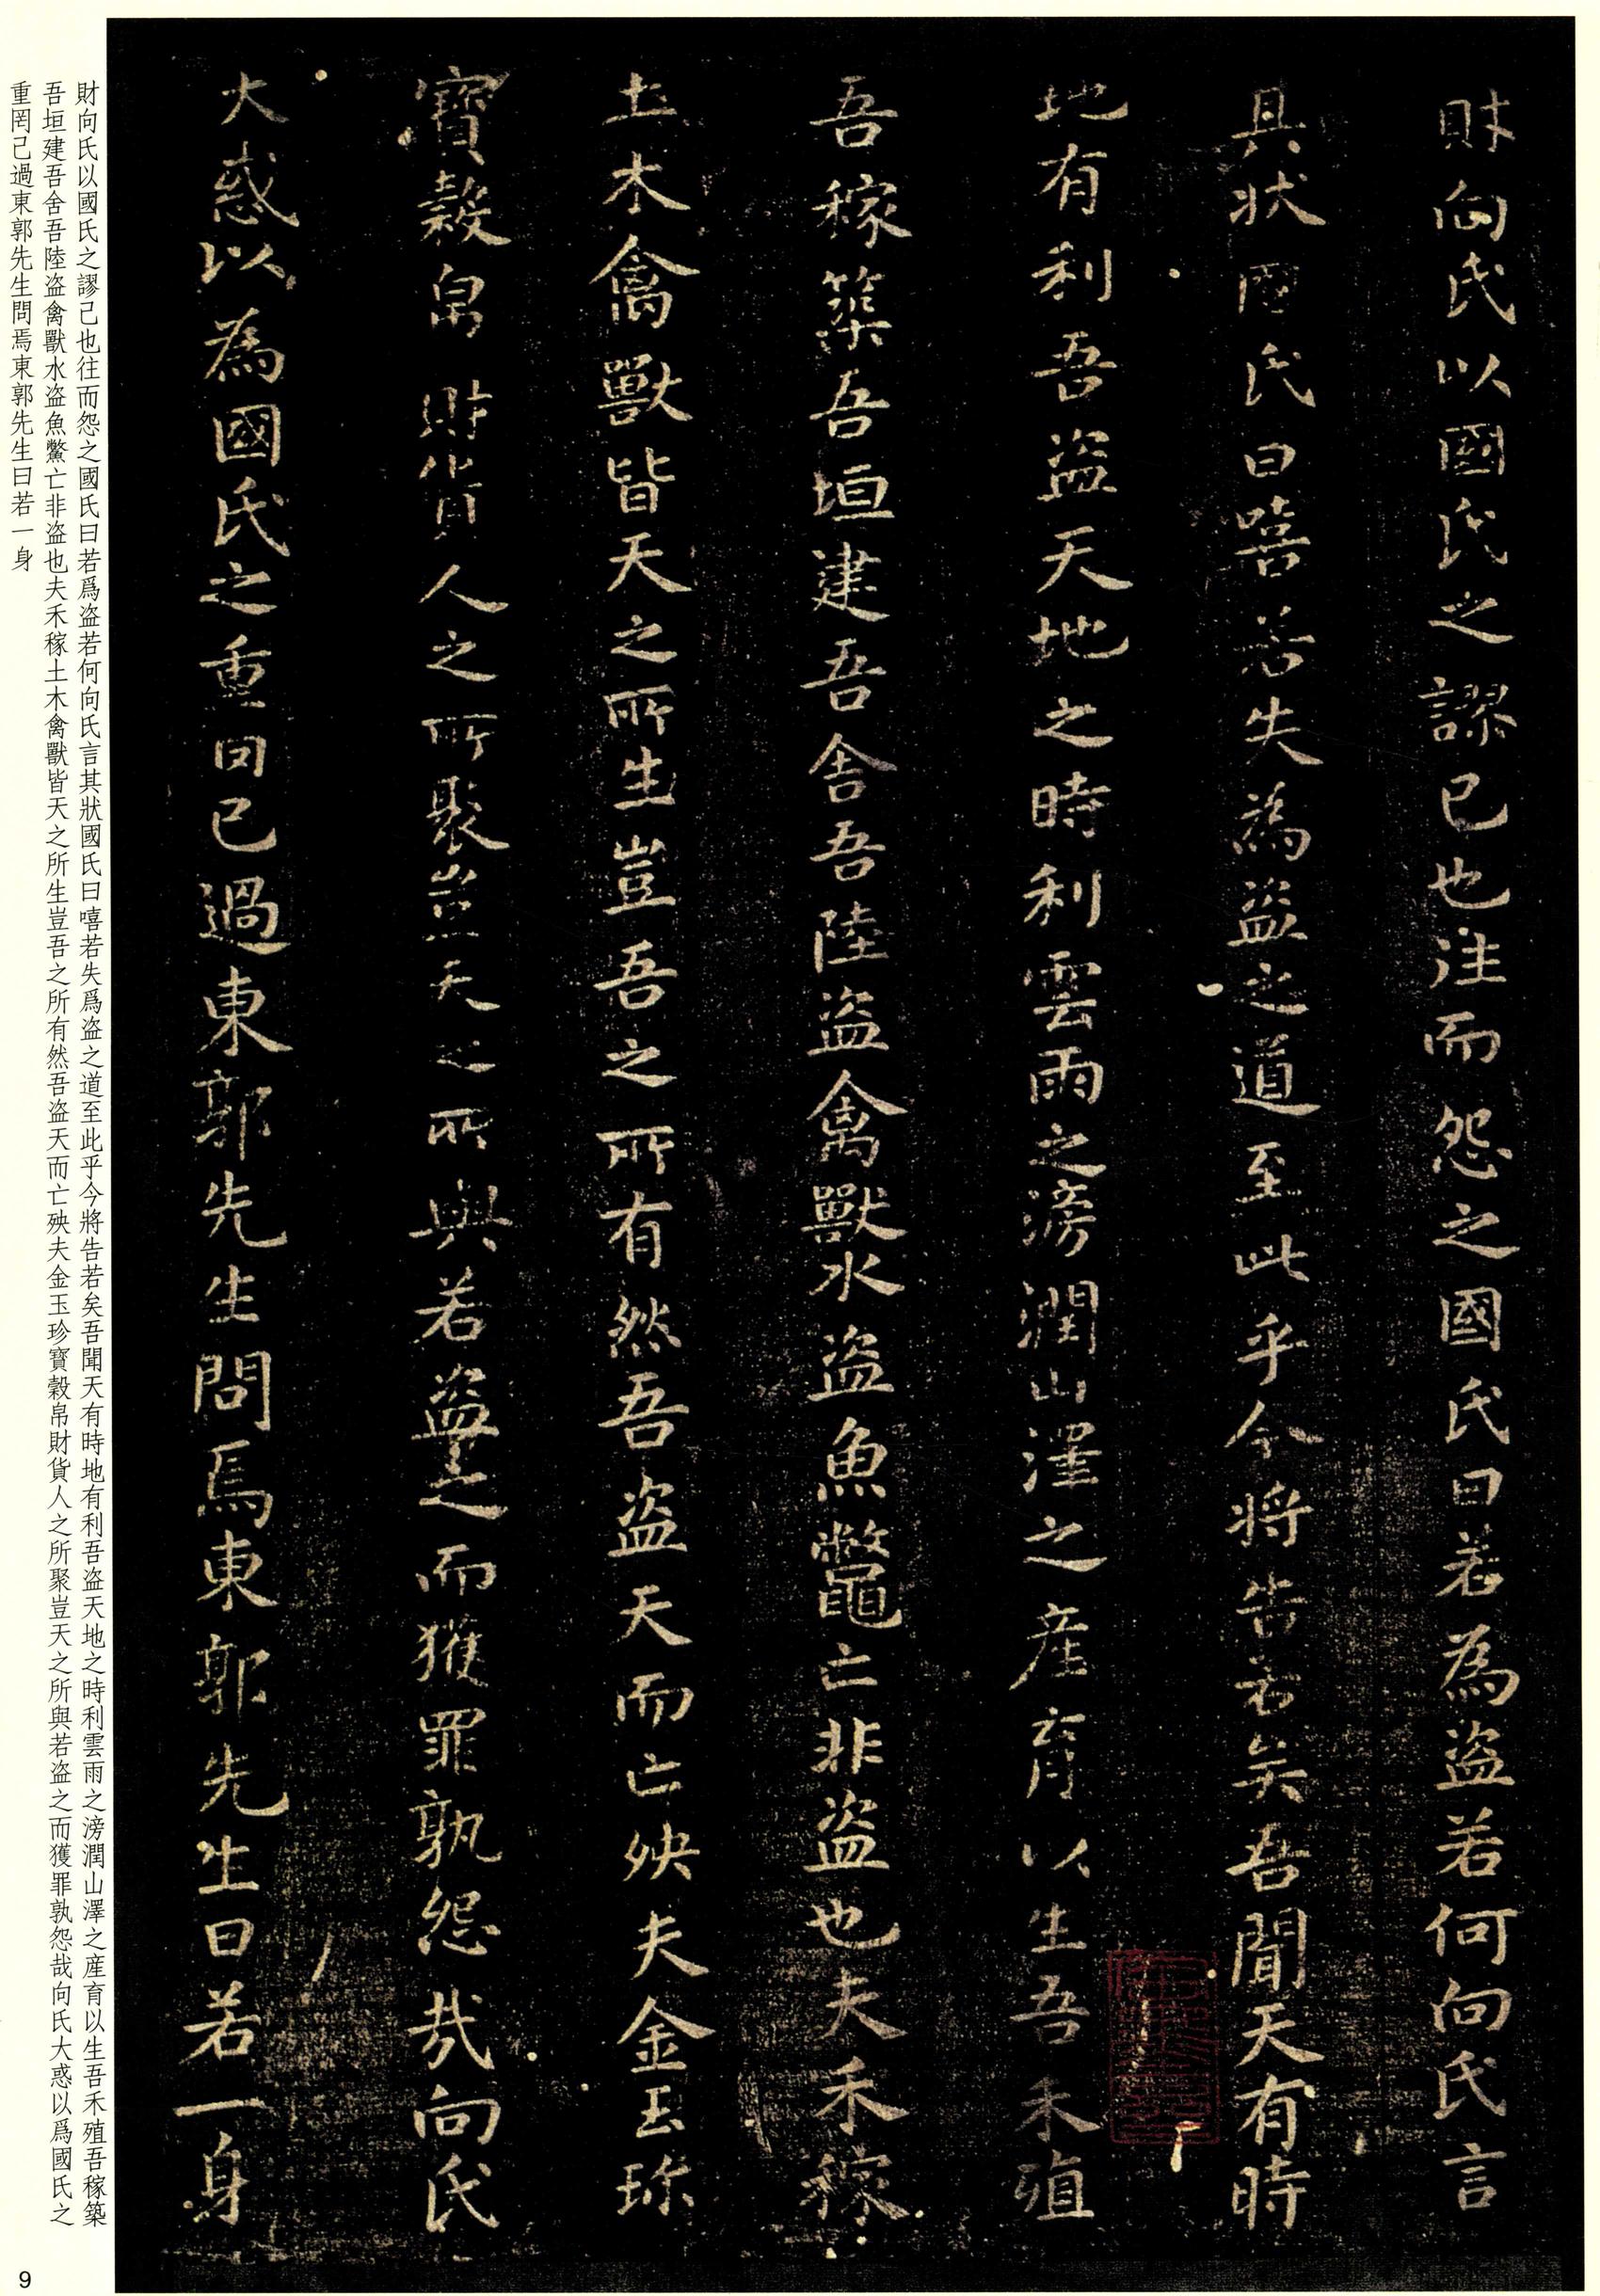 財向氏以國氏之謬己也往而怨之國氏曰若為盜若何向氏言
其狀國氏曰嘻若失為盜之道至此乎今將告若矣吾聞天有時
地有利吾盜天地之時利雲雨之滂潤山澤之産育以生吾禾殖
吾稼築吾垣建吾舍吾陸盜禽獸水盜魚鼈亡非盜也夫禾稼
土木禽獸皆天之所生豈吾之所有然吾盜天而亡殃夫金玉珎
寶穀帛財貨人之所聚豈天之所與若盜之而獲罪孰怨哉向氏
大惑以為國氏之重罔己過東郭先生問焉東郭先生曰若一身
財向氏以國氏之謬己也往而怨之國氏曰若爲盜若何向氏言其狀國氏曰嘻若失爲盜之道至此乎今將告若矣吾聞天有時地有利吾盜天地之時利雲雨之滂潤山澤之産育以生吾禾殖吾稼築
吾垣建吾舍吾陸盜禽獸水盜魚鱉亡非盜也夫禾稼土木禽獸皆天之所生豈吾之所有然吾盜天而亡殃夫金玉珍寶穀帛財貨人之所聚豈天之所與若盜之而獲罪孰怨哉向氏大惑以爲國氏之
重罔己過東郭先生問焉東郭先生曰若一身
9